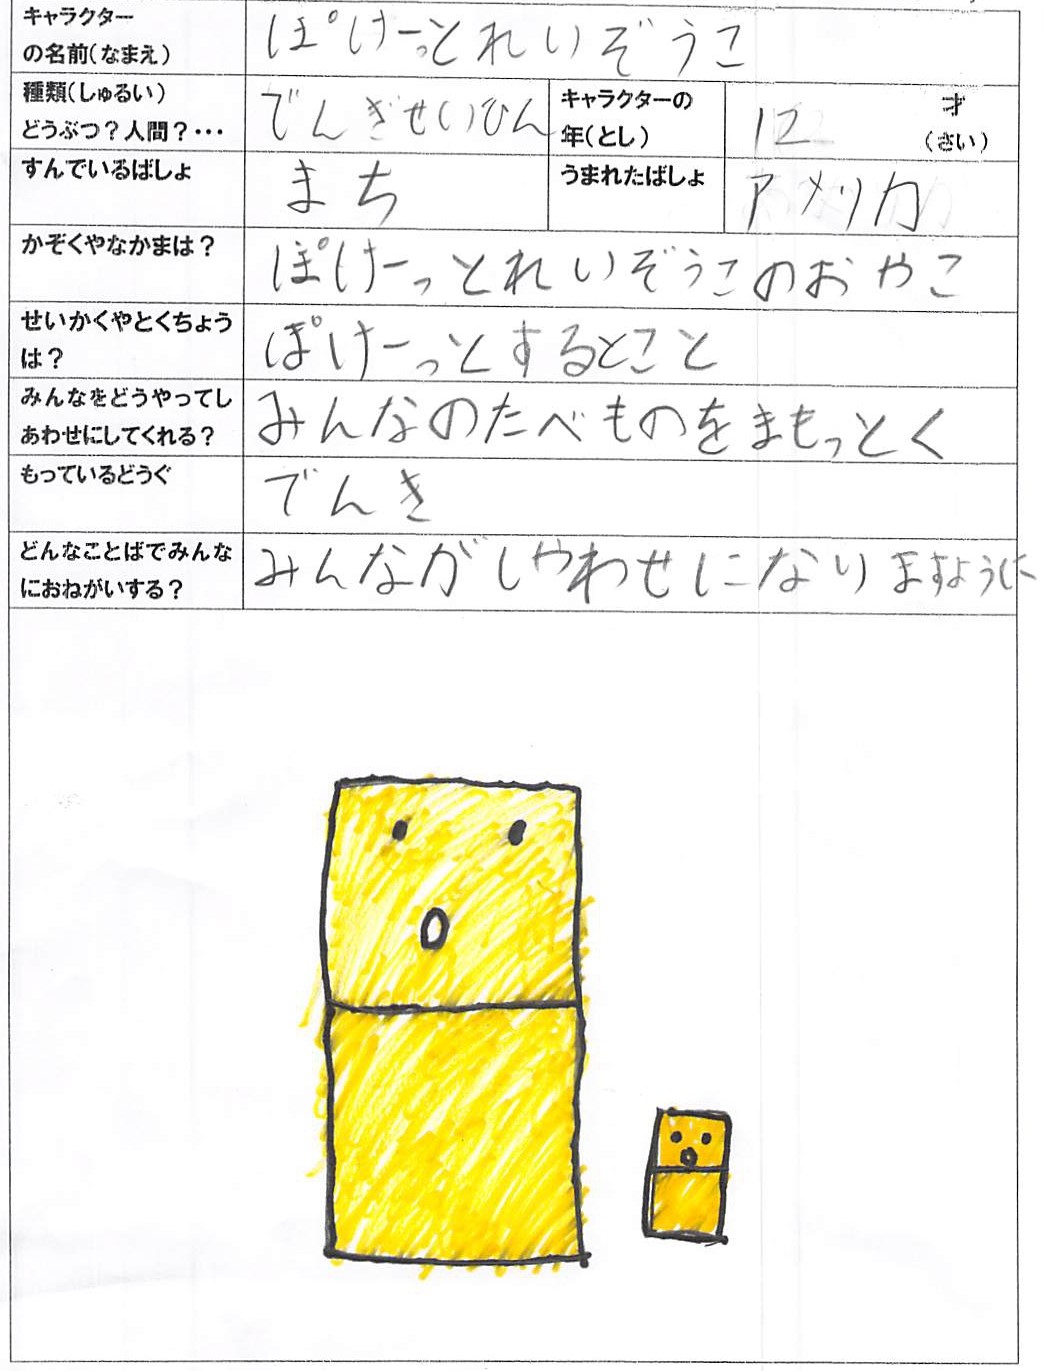 キャラクター
の名前(なまえ)
ぽけーっとれいぞうこ
種類(しゅるい)
どうぶつ?人間?・・・
でんきせいひん
キャラクターの
年(とし)
12
才
(さい)
すんでいるばしょ
まち
うまれたばしょ
アメリカ
かぞくやなかまは?
ぽけーっとれいぞうこのおやこ
せいかくやとくちょう
は?
ぽけーっとするとこと
みんなをどうやってし
あわせにしてくれる?
みんなのたべものをまもっとく
もっているどうぐ
でんき
どんなことばでみんな
におねがいする?
みんながしやわせになりますように